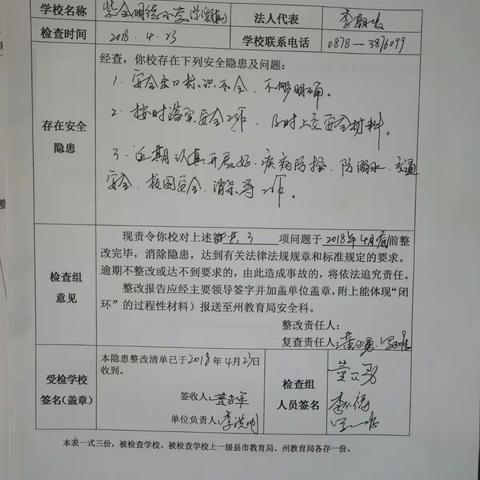 学校名称 紫金明德小学 法人代表 李朝
检查时间 2018.4.23 学校联系电话 0878-3876099
经查，你校存在下列安全隐患及问题：
1. 安全出口标识不全，不够明确。
存在安全隐患
2. 按时落实安全工作，及时上交安全材料。
3. 近期认真开展好、疾病防控、防溺水、交通
安全、校园安全、消杀等工作。
现责令你校对上述 3 项问题于2018年4月底前整
改完毕，消除隐患，达到有关法律法规规章和标准规定的要求。
检查组意见
逾期不整改或达不到要求的，由此造成事故的，将依法追究责任。
整改报告应经主要领导签字并加盖单位盖章，附上能体现“闭
环”的过程性材料）报送至州教育局安全科。
整改责任人：
复查责任人：
本隐患整改清单已于2018年4月23日
收到。
受检学校签名（盖章）
签收人：
单位负责人：
检查组人员签名
本表一式三份，被检查学校、被检查学校上一级县市教育局、州教育局各存一份。